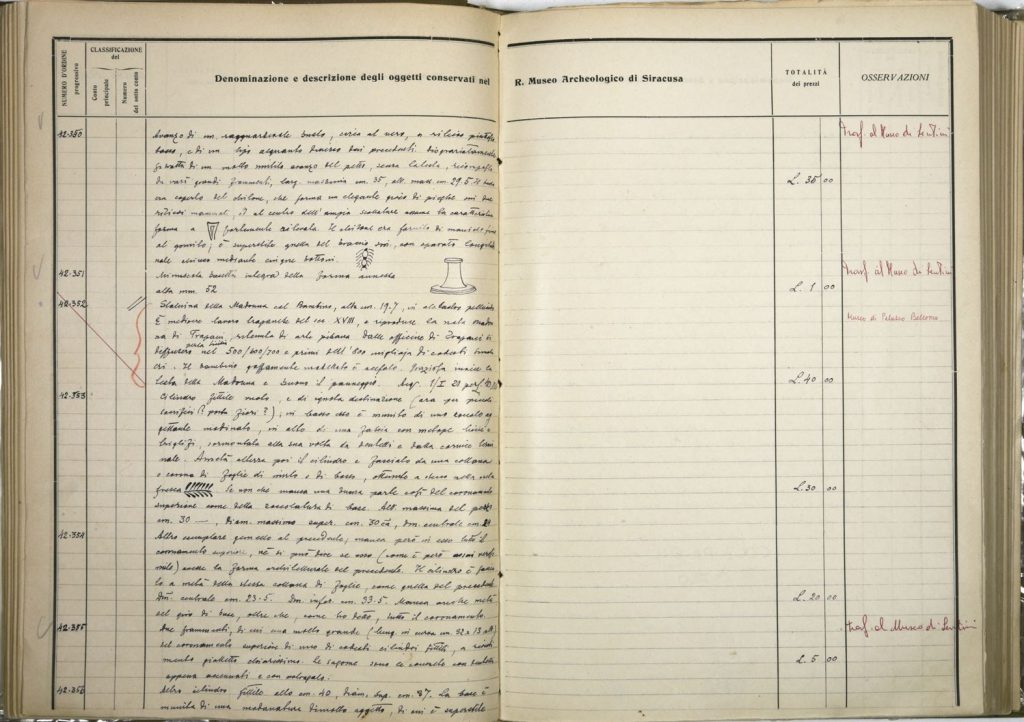 NUMERO D'ORDINE progressivo
CLASSIFICAZIONE del
Conto principale
Numero del sotto conto
Denominazione e descrizione degli oggetti conservati nel R. Museo Archeologico di Siracusa
TOTALITÀ dei prezzi
OSSERVAZIONI
42.350
Avanzo di un ragguardevole busto, circa al vero, a rilievo piuttosto
basso, e di un tipo alquanto diverso dai precedenti. Disgraziatamente
si tratta di un molto mutilo avanzo del petto, senza la testa, ricomposto
da vari grandi frammenti, larg. massima cm. 35, alt. mass. cm. 29.5. Il busto
era coperto del chitone, che forma un elegante gioco di pieghe sui due
al centro dell'ampia scollatura assume la caratteristica
forma a fortemente rilevata. Il chitone era fornito di maniche fino
al gomito; è superstite quella del braccio sin., con apertura longitudi
nale chiusa mediante cinque bottoni.
L. 35 00
Trasf. al Museo di Lentini
42.351
Minuscola basetta integra della forma annessa
alta mm. 52
L. 1 00
Trasf. al Museo di Lentini
42.352
Statuina della Madonna col Bambino, alta cm. 19.7, in alabastro
È mediocre lavoro trapanese del sec. XVIII, e riproduce la nota Madon
na di Trapani, ritenuta di arte pisana. Dalle officine di Trapani si
diffusero nella Sicilia nel 500/600/700 e primi dell'800 migliaia di codesti
Il bambino goffamente modellato è acefalo. Graziosa invece la
testa della Madonna e buono il panneggio.
L. 40 00
Museo di Palazzo Bellomo
42.353
Cilindro fittile vuoto, e di ignota destinazione (ara per piccoli
sacrifici? porta fiori?); in basso esso è munito di uno zoccolo ag
gettante modinato, in alto di una fascia con metope lisce e
triglifi, sormontata alla sua volta da dentelli e dalla cornice termi
nale. A metà altezza poi il cilindro è fasciato da una collana
o corona di foglie di mirto o di bosso, ottenute a stecco nella creta
fresca Se non che manca una buona parte così del coronamento
superiore come della zoccolatura di base. Alt. massima del pezzo
cm. 30 —, diam. massimo super. cm. 30 ca, dm. centrale cm. 23
L. 30 00
42.354
Altro esemplare gemello al precedente; manca però in esso tutto il
coronamento superiore, nè si può dire se esso (come è però assai verosi
mile) avesse la forma architetturale del precedente. Il cilindro è fascia
to a metà della stessa collana di foglie, come quella del precedente
Dm. centrale cm. 23.5. Dm. infer. cm. 33.5. Manca anche metà
del giro di base, oltre che, come ho detto, tutto il coronamento.
L. 20 00
42.355
Due frammenti, di cui uno molto grande (lung. in curva cm. 32 x 13 alt)
del coronamento superiore di uno di codesti cilindri fittili, a
mento gialletto chiarissimo. Le sagome sono le consuete con dentelli
appena accennati e con astragalo.
L. 5 00
Trasf. al Museo di Lentini
42.356
Altro cilindro fittile alto cm. 40, diam. sup. cm. 37. La base è
munita di una modanatura di molto aggetto, di cui è superstite